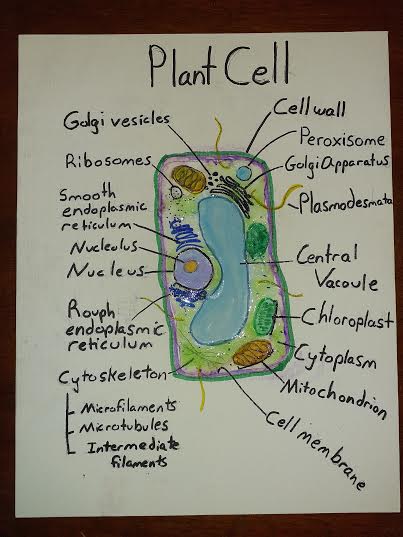 Plant Cell
Golgi vesicles
Ribosomes
Smooth
endoplasmic
reticulum
Nucleolus
Nucleus
Rough
endoplasmic
reticulum
Cytoskeleton
Microfilaments
Microtubules
Intermediate
filaments
Cell wall
Peroxisome
Golgi Apparatus
Plasmodesmata
Central
Vacoule
Chloroplast
Cytoplasm
Mitochondrion
Cell membrane